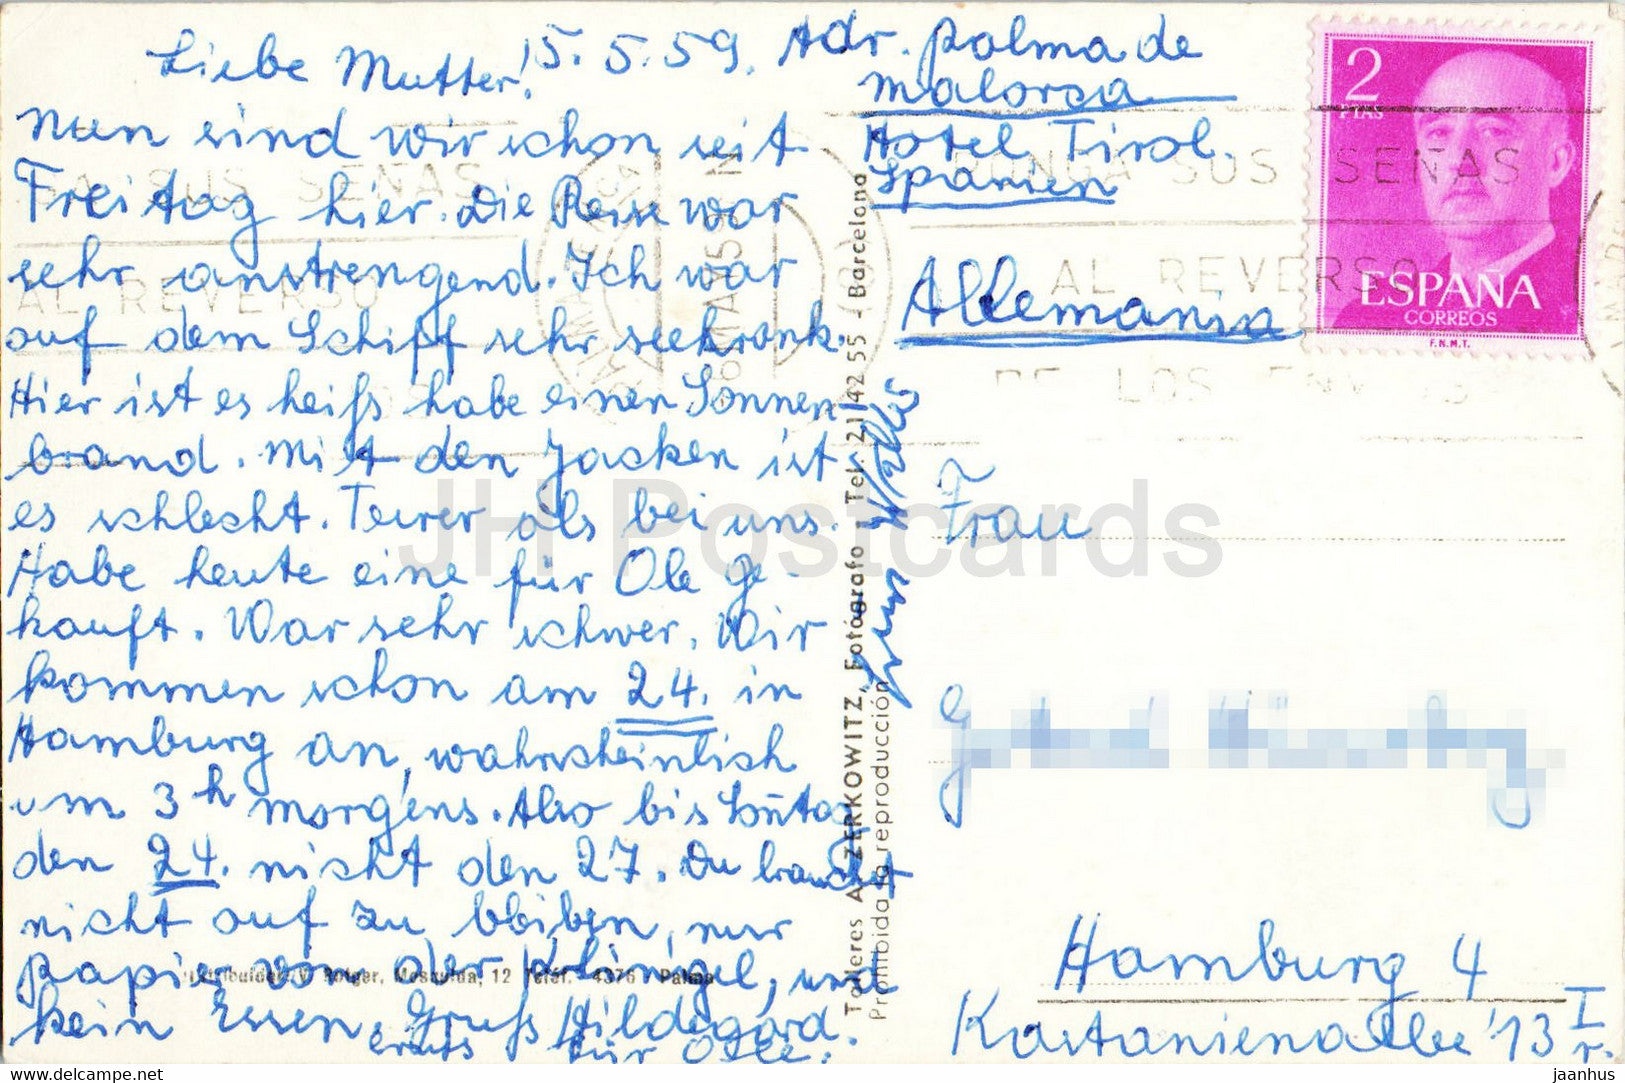 Liebe Mutter! 15.5.59.
Nun sind wir schon seit
Freitag hier. Die Reise war
sehr anstrengend. Ich war
auf dem Schiff sehr seekrank.
Hier ist es heiß habe einen Sonnen
brand. Mit den Jacken ist
es schlecht. Teurer als bei uns.
Habe heute eine für Ole ge-
kauft. War sehr schwer. Wir
kommen schon am 24. in
Hamburg an, wahrscheinlich
um 3 h morgens. Also bis
den 24. nicht den 27. Du brauchst
nicht auf zu bleiben, nur
papier von der Klinigel, und
kein Essen, Gruß Hildegard
für
Adr. Palma de
Malorca
Hotel Tirol.
Spanien
Allemania
Frau
Hamburg 4
Kastanienallee 13 I
r.
2
PTAS
ESPAÑA
CORREOS
F.N.M.T.
SUS SEÑAS
AL REVERSO
PONGA SUS SEÑAS
AL REVERSO
DE LOS
Talleres A. ZERKOWITZ, Fotógrafo - Tel. 21 42 55 - (8) Barcelona
Prohibida la reproducción
Rotger, Mosquida, 12 Teléf. 4376 Palma
JH Postcards
www.delcampe.net
jaanhus